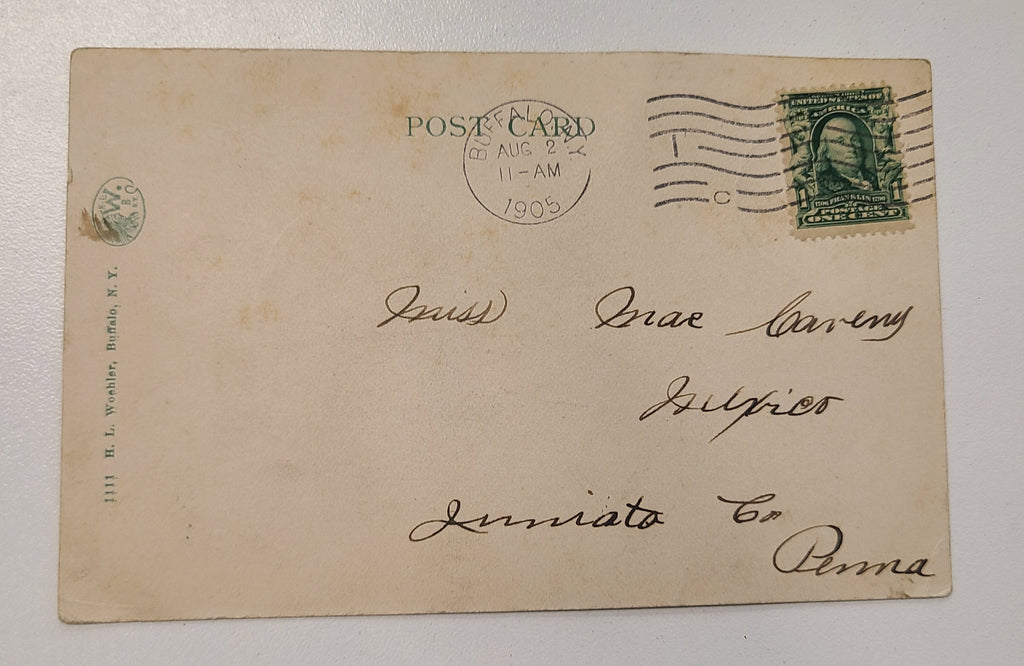 POST CARD
BUFFALO, N.Y.
AUG 2
11-AM
1905
C
UNITED STATES OF
AMERICA
FRANKLIN
POSTAGE
ONE CENT
W.
1111 H. L. Woehler, Buffalo, N. Y.
Miss Mae Caveny
Mexico
Juniata Co
Penna